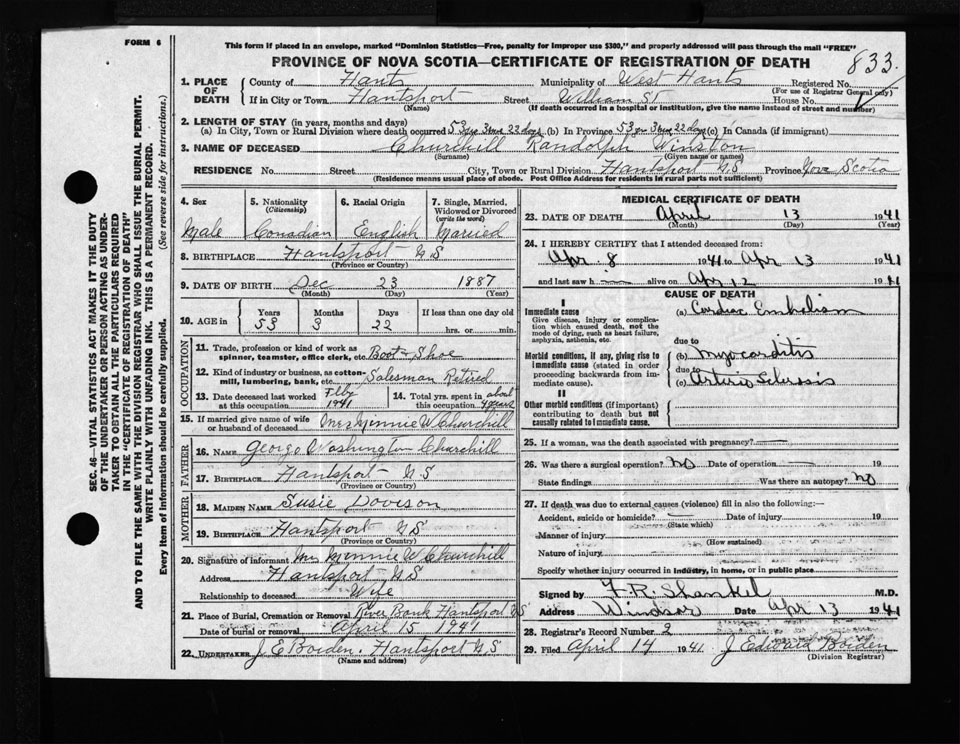 FORM 6
This form if placed in an envelope, marked "Dominion Statistics—Free, penalty for improper use $300," and properly addressed will pass through the mail "FREE"
PROVINCE OF NOVA SCOTIA—CERTIFICATE OF REGISTRATION OF DEATH
833
1. PLACE OF DEATH County of Hants Municipality of West Hants Registered No.
(For use of Registrar General only)
If in City or Town Hantsport Street William St House No.
(Name) (If death occurred in a hospital or institution, give the name instead of street and number)
2. LENGTH OF STAY (in years, months and days)
(a) In City, Town or Rural Division where death occurred 53 yrs 3 mos 22 days (b) In Province 53 yrs 3 mos 22 days (c) In Canada (if immigrant)
3. NAME OF DECEASED Churchill Randolph Winston
(Surname) (Given name or names)
RESIDENCE No. Street City, Town or Rural Division Hantsport N.S Province Nova Scotia
(Residence means usual place of abode. Post Office Address for residents in rural parts not sufficient)
4. Sex 5. Nationality (Citizenship) 6. Racial Origin 7. Single, Married, Widowed or Divorced (write the word)
Male Canadian English Married
8. BIRTHPLACE Hantsport N S
(Province or Country)
9. DATE OF BIRTH Dec 23 1887
(Month) (Day) (Year)
10. AGE in Years Months Days If less than one day old
53 3 22 hrs. or min.
OCCUPATION
11. Trade, profession or kind of work as spinner, teamster, office clerk, etc. Boot - Shoe
12. Kind of industry or business, as cotton-mill, lumbering, bank, etc. Salesman Retired
13. Date deceased last worked at this occupation Feby 1941 14. Total yrs. spent in this occupation about
15. If married give name of wife or husband of deceased Mrs Minnie W Churchill
FATHER
16. NAME George Washington Churchill
17. BIRTHPLACE Hantsport N S
(Province or Country)
MOTHER
18. MAIDEN NAME Susie Davison
19. BIRTHPLACE Hantsport N S
(Province or Country)
20. Signature of informant Mrs Minnie W Churchill
Address Hantsport N S
Relationship to deceased Wife
21. Place of Burial, Cremation or Removal River Bank Hantsport N S
Date of burial or removal April 15 1941
22. UNDERTAKER J. E Borden. Hantsport N. S
(Name and address)
MEDICAL CERTIFICATE OF DEATH
23. DATE OF DEATH April 13 1941
(Month) (Day) (Year)
24. I HEREBY CERTIFY that I attended deceased from:
Apr. 8 1941 to Apr 13 1941
and last saw h alive on Apr 12 1941
CAUSE OF DEATH
I
Immediate cause
Give disease, injury or complication which caused death, not the mode of dying, such as heart failure, asphyxia, asthenia, etc.
(a) Cardiac Embolism
due to
Morbid conditions, if any, giving rise to immediate cause (stated in order proceeding backwards from immediate cause).
(b) Myocarditis
due to
(c) Arterio Sclerosis
II
Other morbid conditions (if important) contributing to death but not causally related to immediate cause.
25. If a woman, was the death associated with pregnancy?
26. Was there a surgical operation? No Date of operation 19
State findings Was there an autopsy? No
27. If death was due to external causes (violence) fill in also the following:—
Accident, suicide or homicide? Date of injury 19
(State which)
Manner of injury
(How sustained)
Nature of injury
Specify whether injury occurred in industry, in home, or in public place
Signed by F. R. Shankel M.D.
Address Windsor Date Apr 13 1941
28. Registrar's Record Number 2
29. Filed April 14 1941 J Edward Borden
(Division Registrar)
SEC. 46—VITAL STATISTICS ACT MAKES IT THE DUTY
OF THE UNDERTAKER OR PERSON ACTING AS UNDER-
TAKER TO OBTAIN ALL THE PARTICULARS REQUIRED
IN THE "CERTIFICATE OF REGISTRATION OF DEATH"
AND TO FILE THE SAME WITH THE DIVISION REGISTRAR WHO SHALL ISSUE THE BURIAL PERMIT.
WRITE PLAINLY WITH UNFADING INK. THIS IS A PERMANENT RECORD.
Every item of information should be carefully supplied. (See reverse side for instructions.)